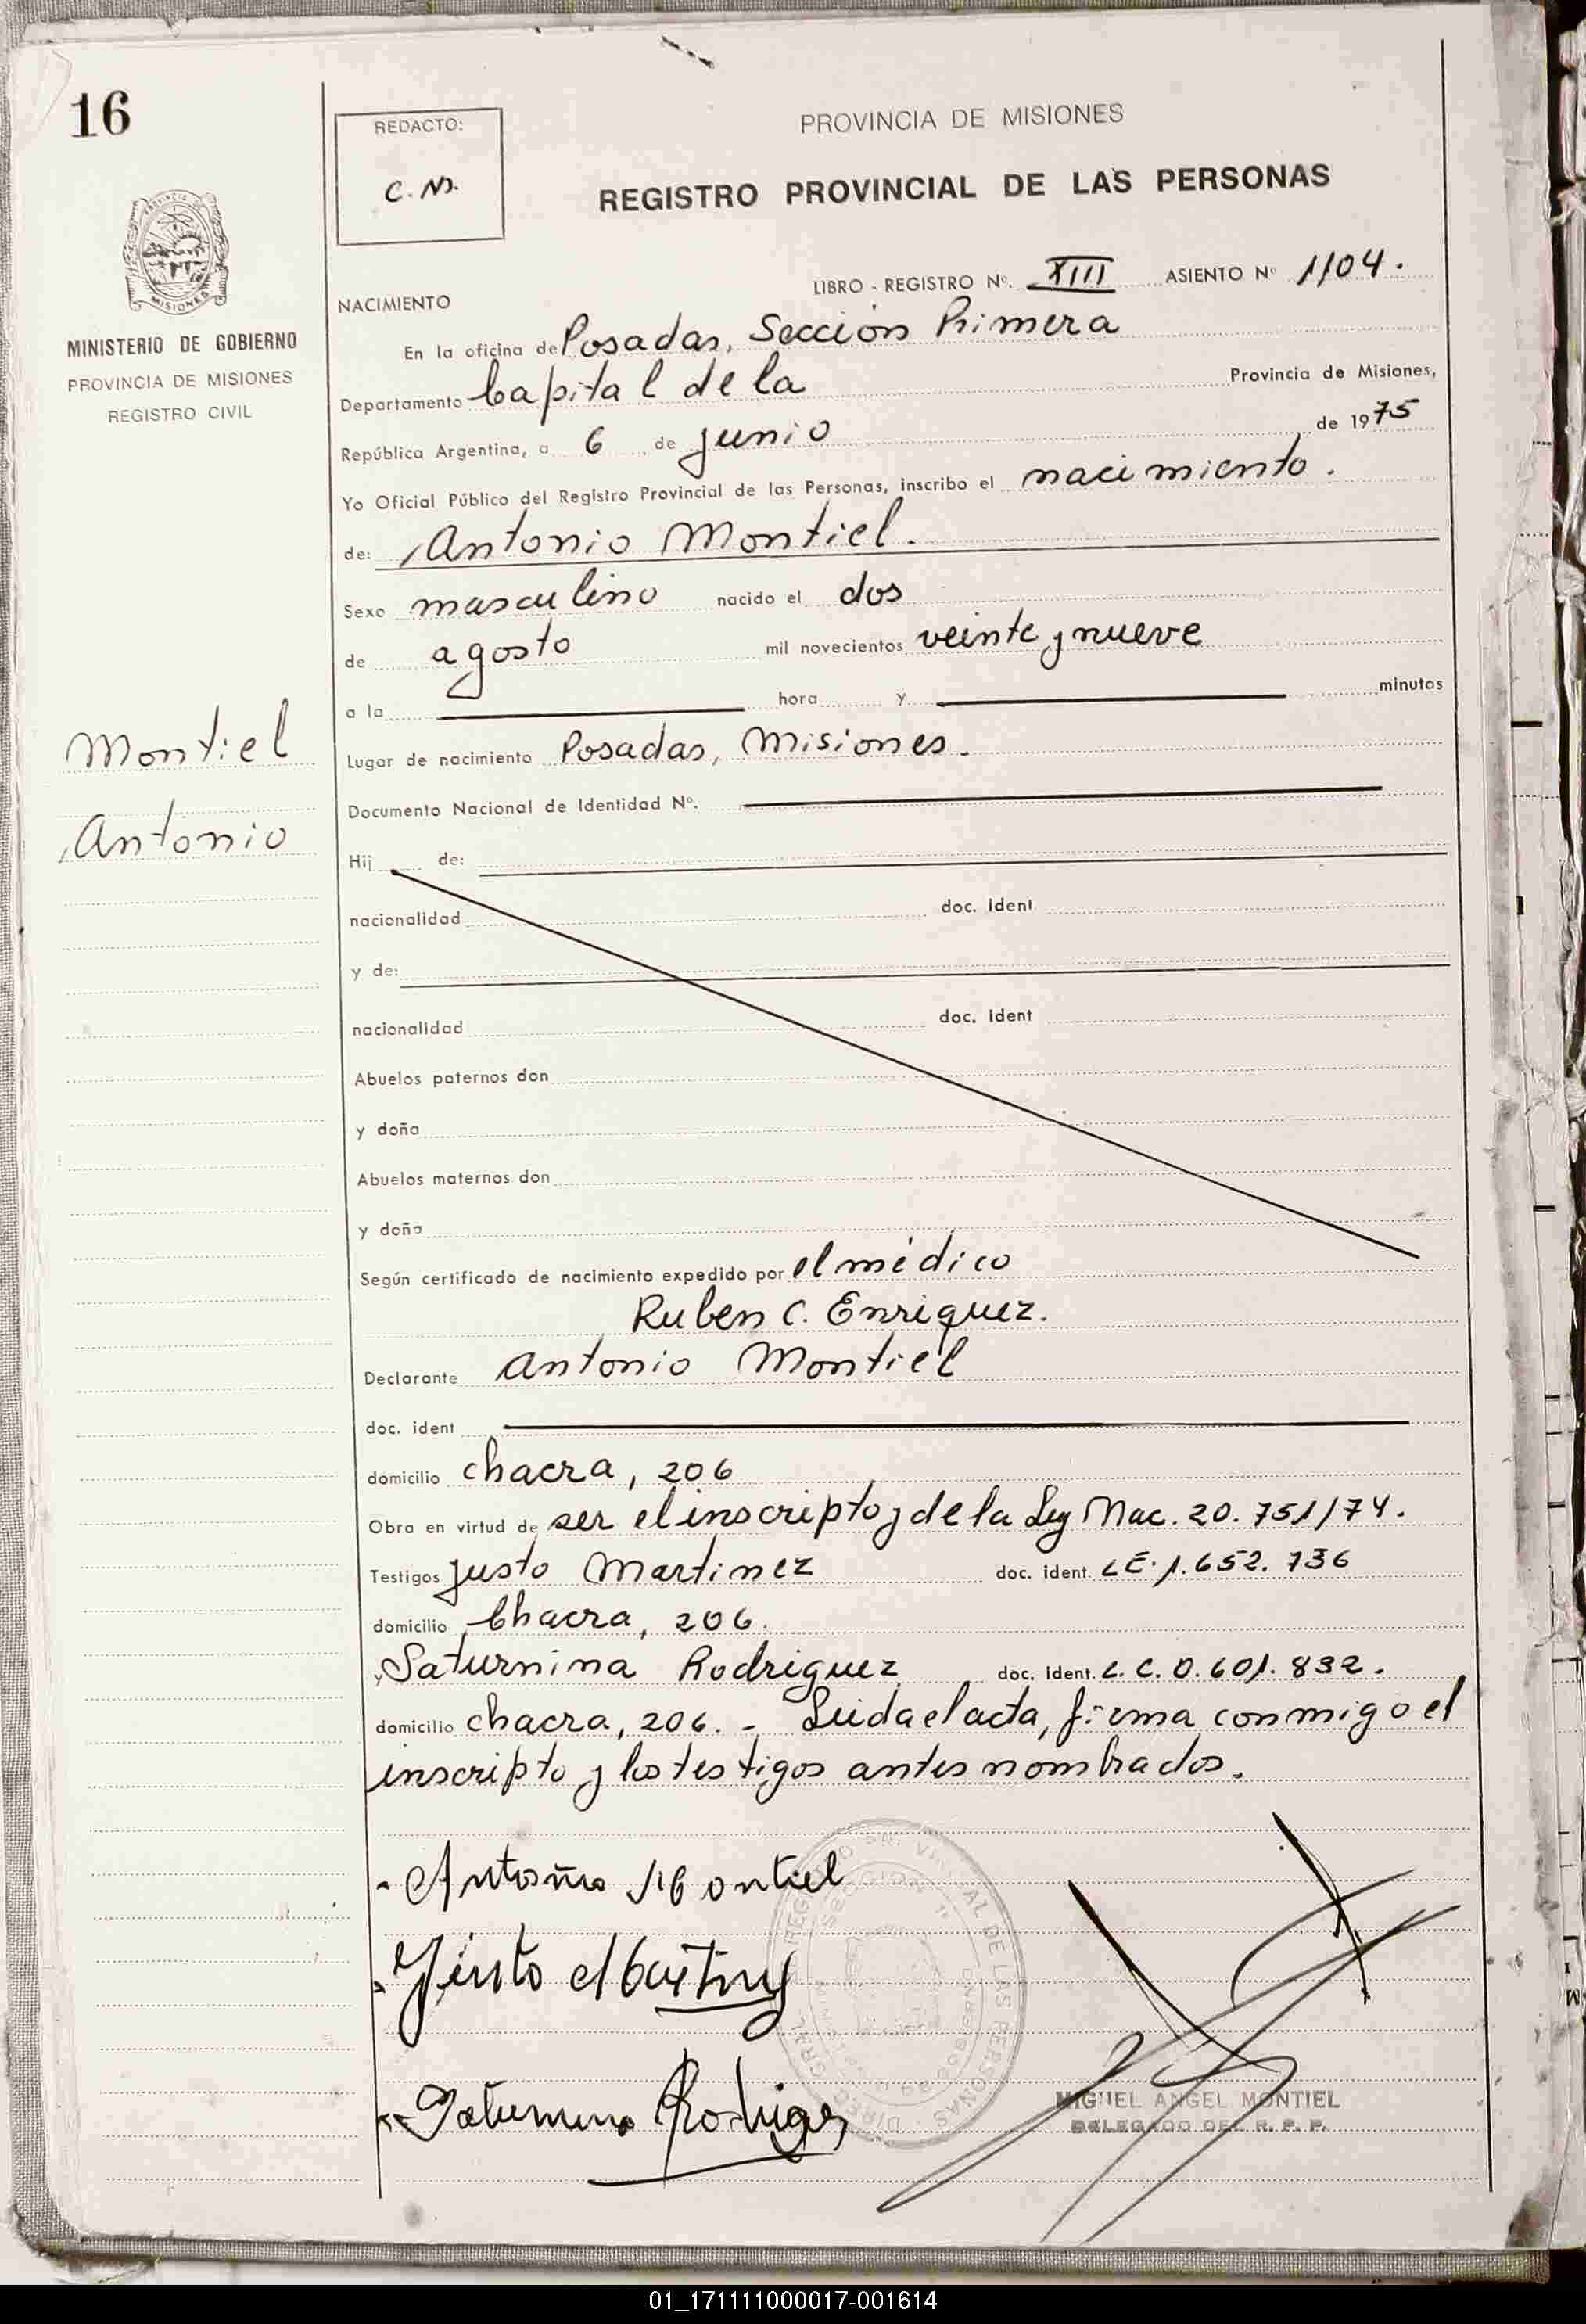 16
REDACTO:
C. N.
PROVINCIA DE MISIONES
REGISTRO PROVINCIAL DE LAS PERSONAS
MISIONES
MINISTERIO DE GOBIERNO
PROVINCIA DE MISIONES
REGISTRO CIVIL
LIBRO - REGISTRO Nº. XIII ASIENTO Nº 1104.
NACIMIENTO
En la oficina de Posadas, Sección Primera
Departamento Capital de la Provincia de Misiones,
República Argentina, a 6 de junio de 1975
Yo Oficial Público del Registro Provincial de las Personas, inscribo el nacimiento.
de: Antonio Montiel.
Sexo masculino nacido el dos
de agosto mil novecientos veinte y nueve
a la hora y minutos
Montiel
Antonio
Lugar de nacimiento Posadas, Misiones.
Documento Nacional de Identidad Nº.
Hij de:
nacionalidad doc. ident
y de:
nacionalidad doc. ident
Abuelos paternos don
y doña
Abuelos maternos don
y doña
Según certificado de nacimiento expedido por el médico
Ruben C. Enriquez.
Declarante Antonio Montiel
doc. ident
domicilio chacra, 206
Obra en virtud de ser el inscripto y de la Ley Nac. 20.751/74.
Testigos Justo Martinez doc. ident. LE. 1.652.736
domicilio Chacra, 206.
y Saturnina Rodriguez doc. ident. L. C. 0.601.832.
domicilio chacra, 206. - Leida el acta, firma conmigo el
inscripto y los testigos antes nombrados.
Antonio Montiel
Justo Martinez
Saturnina Rodriguez
MIGUEL ANGEL MONTIEL
DELEGADO DEL R. P. P.
01_171111000017-001614